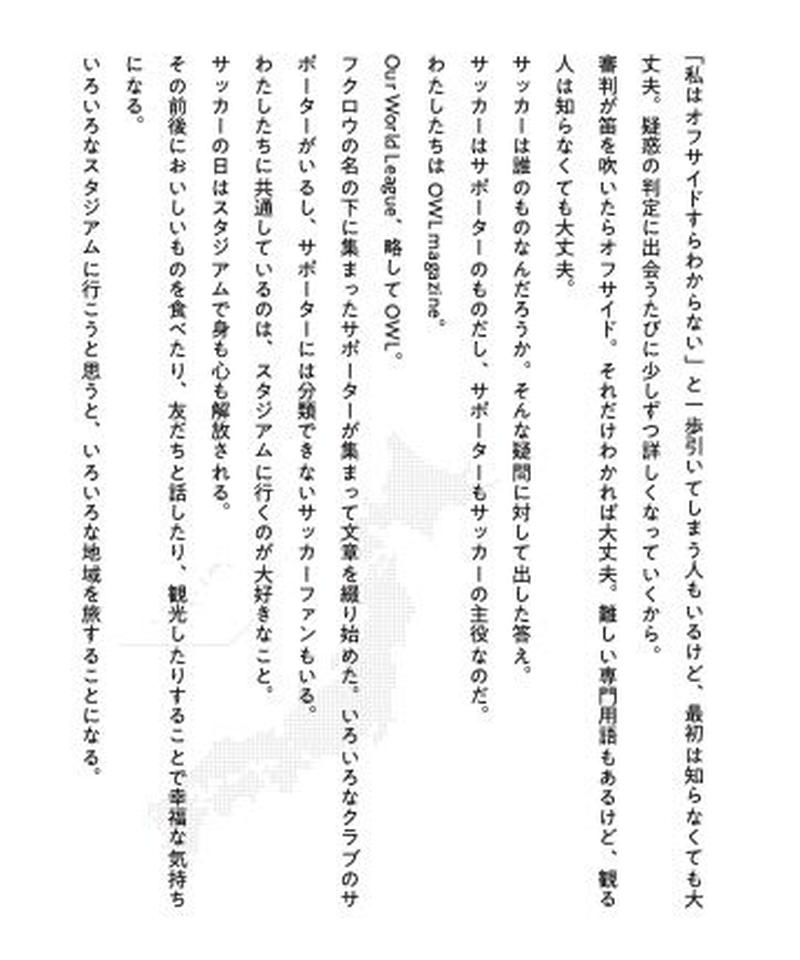 「私はオフサイドすらわからない」と一歩引いてしまう人もいるけど、最初は知らなくても大
丈夫。疑惑の判定に出会うたびに少しずつ詳しくなっていくから。
審判が笛を吹いたらオフサイド。それだけわかれば大丈夫。難しい専門用語もあるけど、観る
人は知らなくても大丈夫。
サッカーは誰のものなんだろうか。そんな疑問に対して出した答え。
サッカーはサポーターのものだし、サポーターもサッカーの主役なのだ。
わたしたちは OWL magazine。
Our World League、略して OWL。
フクロウの名の下に集まったサポーターが集まって文章を綴り始めた。いろいろなクラブのサ
ポーターがいるし、サポーターには分類できないサッカーファンもいる。
わたしたちに共通しているのは、スタジアムに行くのが大好きなこと。
サッカーの日はスタジアムで身も心も解放される。
その前後においしいものを食べたり、友だちと話したり、観光したりすることで幸福な気持ち
になる。
いろいろなスタジアムに行こうと思うと、いろいろな地域を旅することになる。